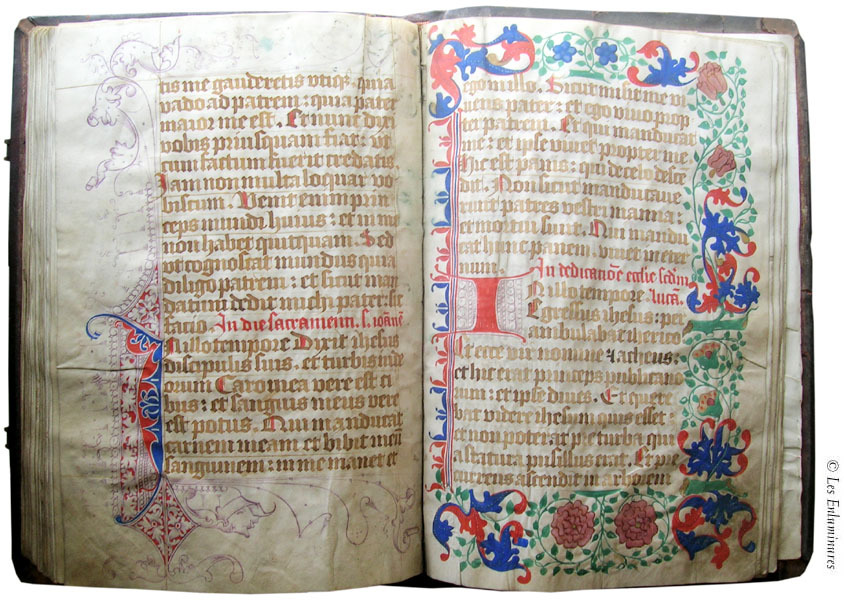 tis me gauderetis utiq3 quia
vado ad patrem : quia pater
maior me est . Et nunc dixi
vobis priusquam fiat : ut
cum factum fuerit credatis
Iam non multa loquar vo
biscum . Venit enim prin
ceps mundi huius : et in me
non habet quitquam . Sed
ut cognoscat mundus quia
diligo patrem : et sicut man
datum dedit michi pater : sic
facio . In die sacramenti . s. ioānē
In illo tempore Dixit ihesus
discipulis suis . et turbis iude
orum Caro mea vere est ci
bus : et sanguis meus vere
est potus . Qui manducat
carnem meam et bibit meū
sanguinem : in me manet et
ego in illo . Sicut misit me vi
vens pater : et ego vivo prop
ter patrem . Et qui manducat
me : et ipse vivet propter me
Hic est panis : qui de celo desce
dit . Non sicut manducave
runt patres vestri manna :
et mortui sunt . Qui mandu
cat hunc panem : vivet in eter
num . In dedicatiōe ecclie secdm
In illo tempore . lucā .
Egressus ihesus : per
ambulabat iherico
Et ecce vir nomine zacheus :
et hic erat princeps publicano
rum : et ipse dives . Et quere
bat videre ihesum quis esset :
et non poterat pre turba qui
a statura pusillus erat . Et pre
currens ascendit in arborem
© Les Enluminures